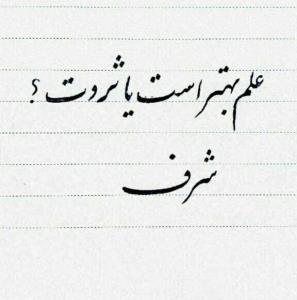 علم بهتر است یا ثروت ؟
شرف